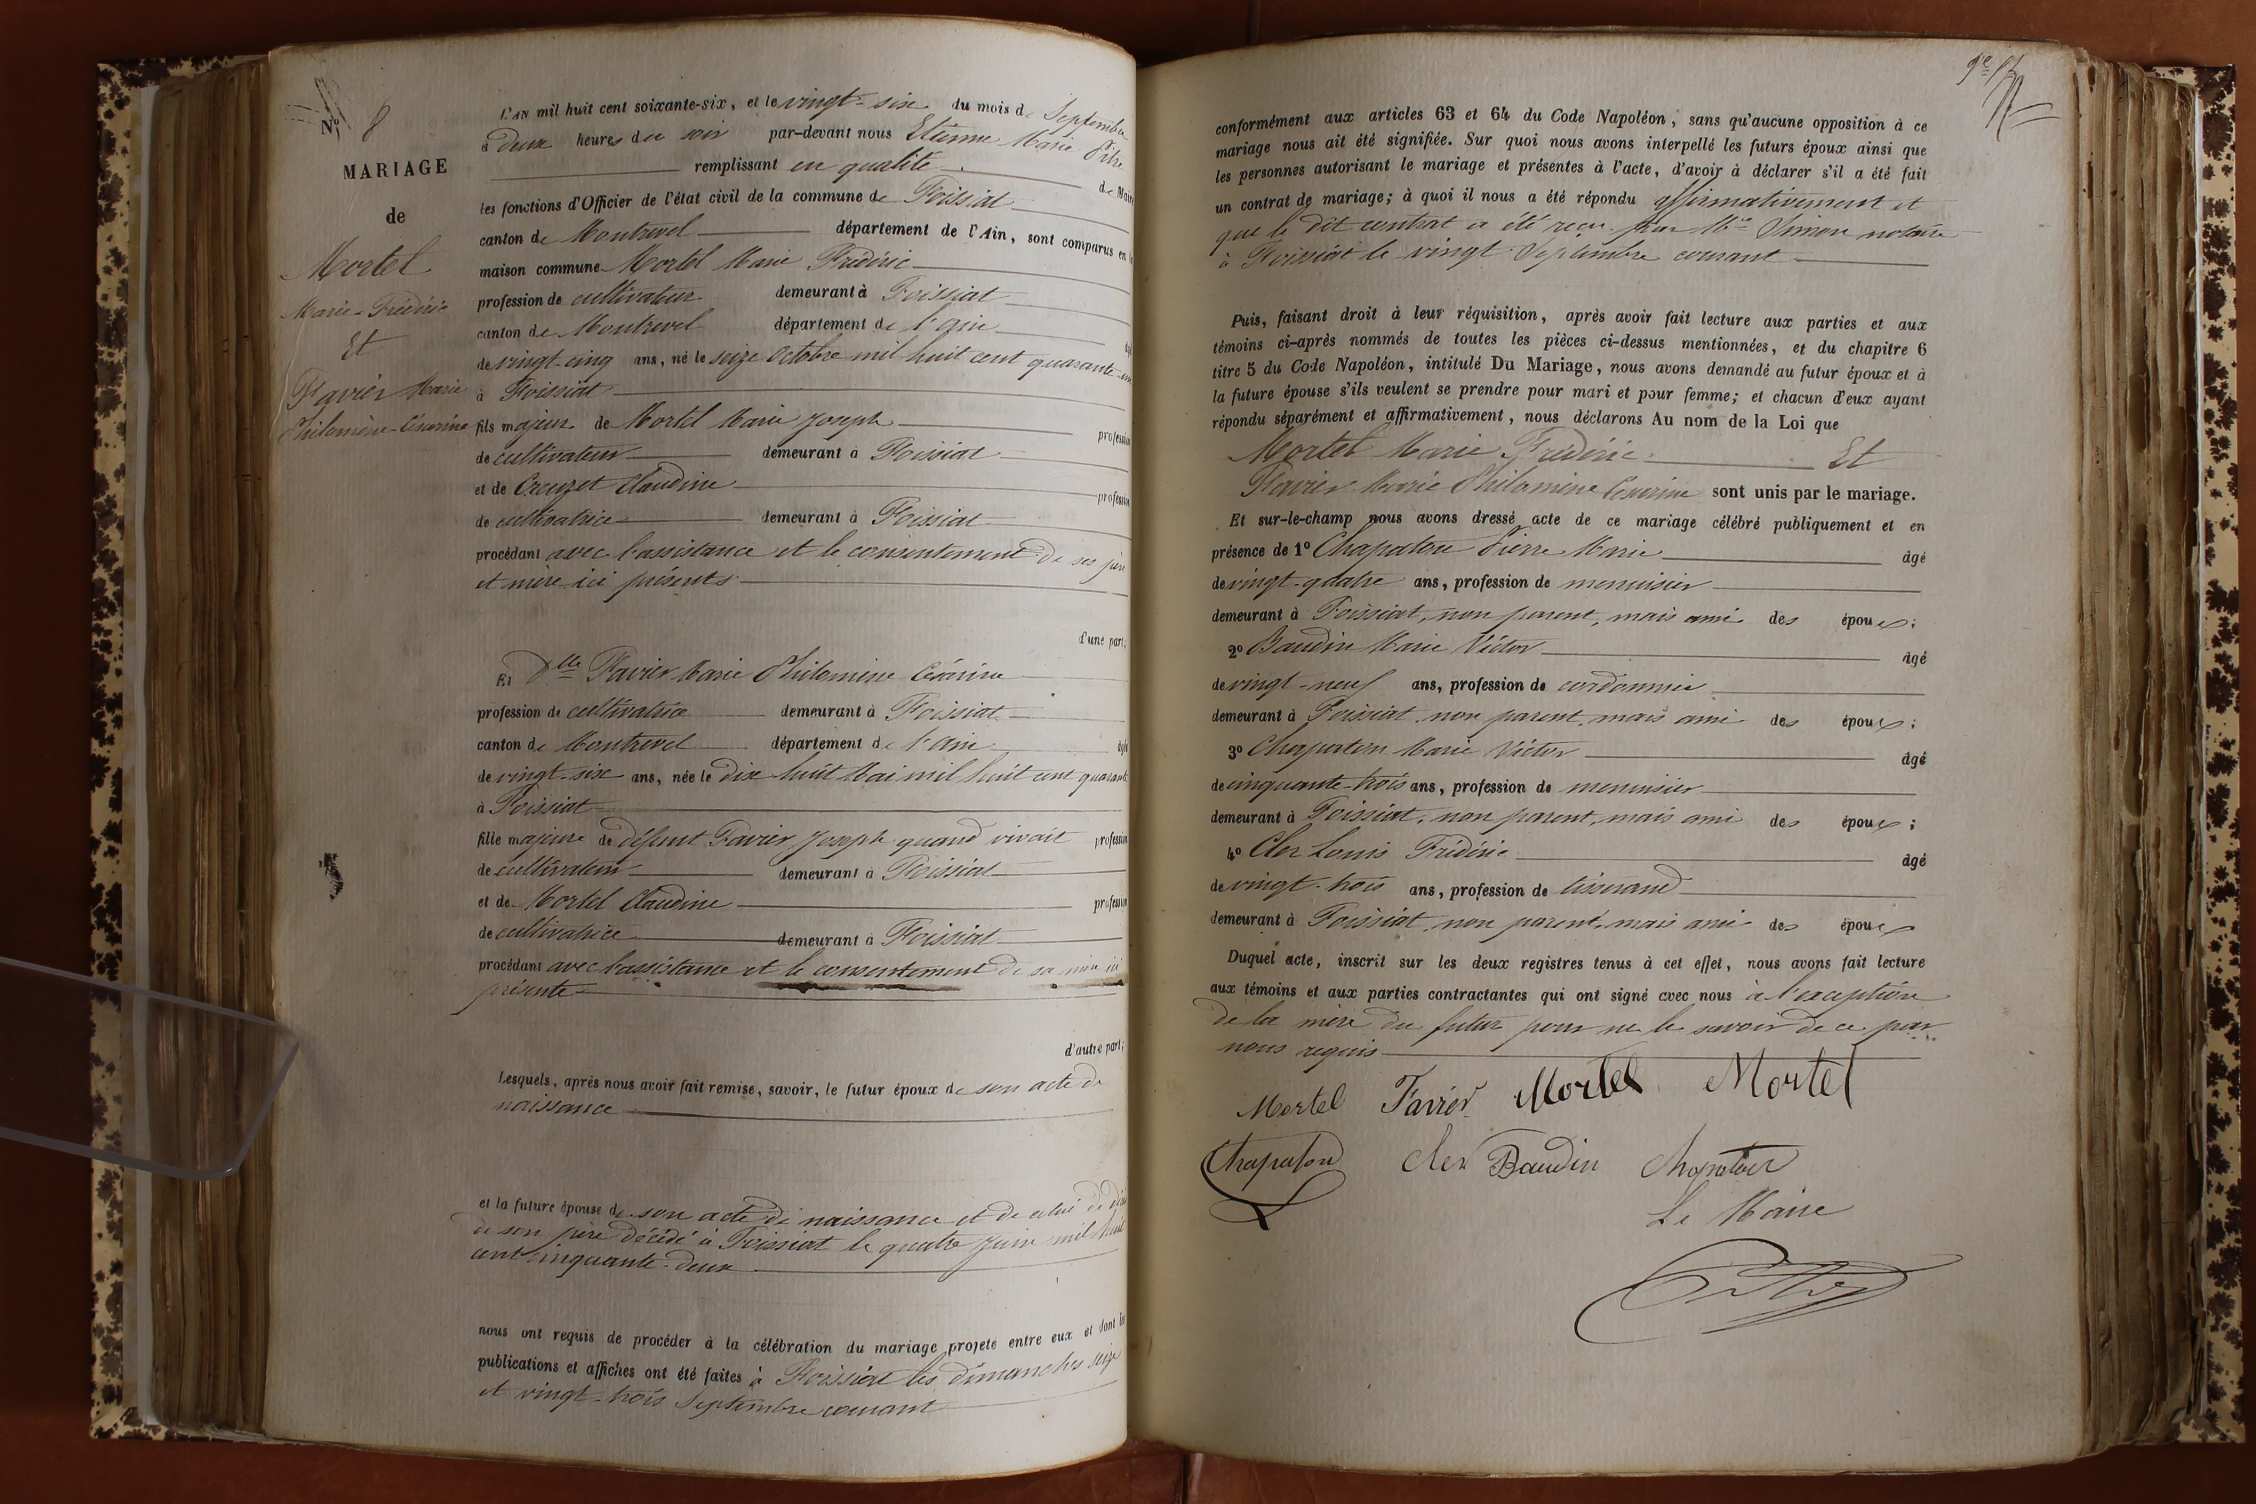 N° 8
MARIAGE
de
Mortel
Marie-Frédéric
Et
Favier Marie
Philomène-Césarine
L'AN mil huit cent soixante-six, et le vingt-six du mois de Septembre
à deux heures du soir par-devant nous Etienne Marie Pitre
remplissant en qualité de Maire
les fonctions d'Officier de l'état civil de la commune de Foissiat
canton de Montrevel département de l'Ain, sont comparus en la
maison commune Mortel Marie Frédéric
profession de cultivateur demeurant à Foissiat
canton de Montrevel département de l'ain âgé
de vingt-cinq ans, né le seize Octobre mil huit cent quarante-un
à Foissiat
fils majeur de Mortel Marie Joseph profession
de cultivateur demeurant à Foissiat
et de Creuzet Claudine profession
de cultivatrice demeurant à Foissiat
procédant avec l'assistance et le consentement de ses père
et mère ici présents
d'une part;
Et Dlle Favier Marie Philomène Césarine
profession de cultivatrice demeurant à Foissiat
canton de Montrevel département de l'ain âgée
de vingt-six ans, née le dix huit Mai mil huit cent quarante
à Foissiat
fille majeure de défunt Favier Joseph quand vivait profession
de cultivateur demeurant à Foissiat
et de Mortel Claudine profession
de cultivatrice demeurant à Foissiat
procédant avec l'assistance et le consentement de sa mère ici
présente
d'autre part;
Lesquels, après nous avoir fait remise, savoir, le futur époux de son acte de
naissance
et la future épouse de son acte de naissance et de celui de décès
de son père décédé à Foissiat le quatre Juin mil huit
cent cinquante-deux
nous ont requis de procéder à la célébration du mariage projeté entre eux et dont les
publications et affiches ont été faites à Foissiat les dimanches seize
et vingt-trois Septembre courant
conformément aux articles 63 et 64 du Code Napoléon, sans qu'aucune opposition à ce
mariage nous ait été signifiée. Sur quoi nous avons interpellé les futurs époux ainsi que
les personnes autorisant le mariage et présentes à l'acte, d'avoir à déclarer s'il a été fait
un contrat de mariage; à quoi il nous a été répondu affirmativement et
que le dit contrat a été reçu par Me Simon notaire
à Foissiat le vingt Septembre courant
Puis, faisant droit à leur réquisition, après avoir fait lecture aux parties et aux
témoins ci-après nommés de toutes les pièces ci-dessus mentionnées, et du chapitre 6
titre 5 du Code Napoléon, intitulé Du Mariage, nous avons demandé au futur époux et à
la future épouse s'ils veulent se prendre pour mari et pour femme; et chacun d'eux ayant
répondu séparément et affirmativement, nous déclarons Au nom de la Loi que
Mortel Marie Frédéric Et
Favier Marie Philomène Césarine sont unis par le mariage.
Et sur-le-champ nous avons dressé acte de ce mariage célébré publiquement et en
présence de 1° Chapaton Pierre Marie âgé
de vingt-quatre ans, profession de menuisier
demeurant à Foissiat, non parent, mais ami des époux;
2° Baudin Marie Victor âgé
de vingt-neuf ans, profession de cordonnier
demeurant à Foissiat, non parent, mais ami des époux;
3° Chapaton Marie Victor âgé
de cinquante-trois ans, profession de menuisier
demeurant à Foissiat, non parent, mais ami des époux;
4° Cler Louis Frédéric âgé
de vingt-trois ans, profession de tisserand
demeurant à Foissiat, non parent, mais ami des époux
Duquel acte, inscrit sur les deux registres tenus à cet effet, nous avons fait lecture
aux témoins et aux parties contractantes qui ont signé avec nous à l'exception
de la mère du futur pour ne le savoir de ce par
nous requis
Mortel Favier Mortel Mortel
Chapaton Cler Baudin Chapaton
Le Maire